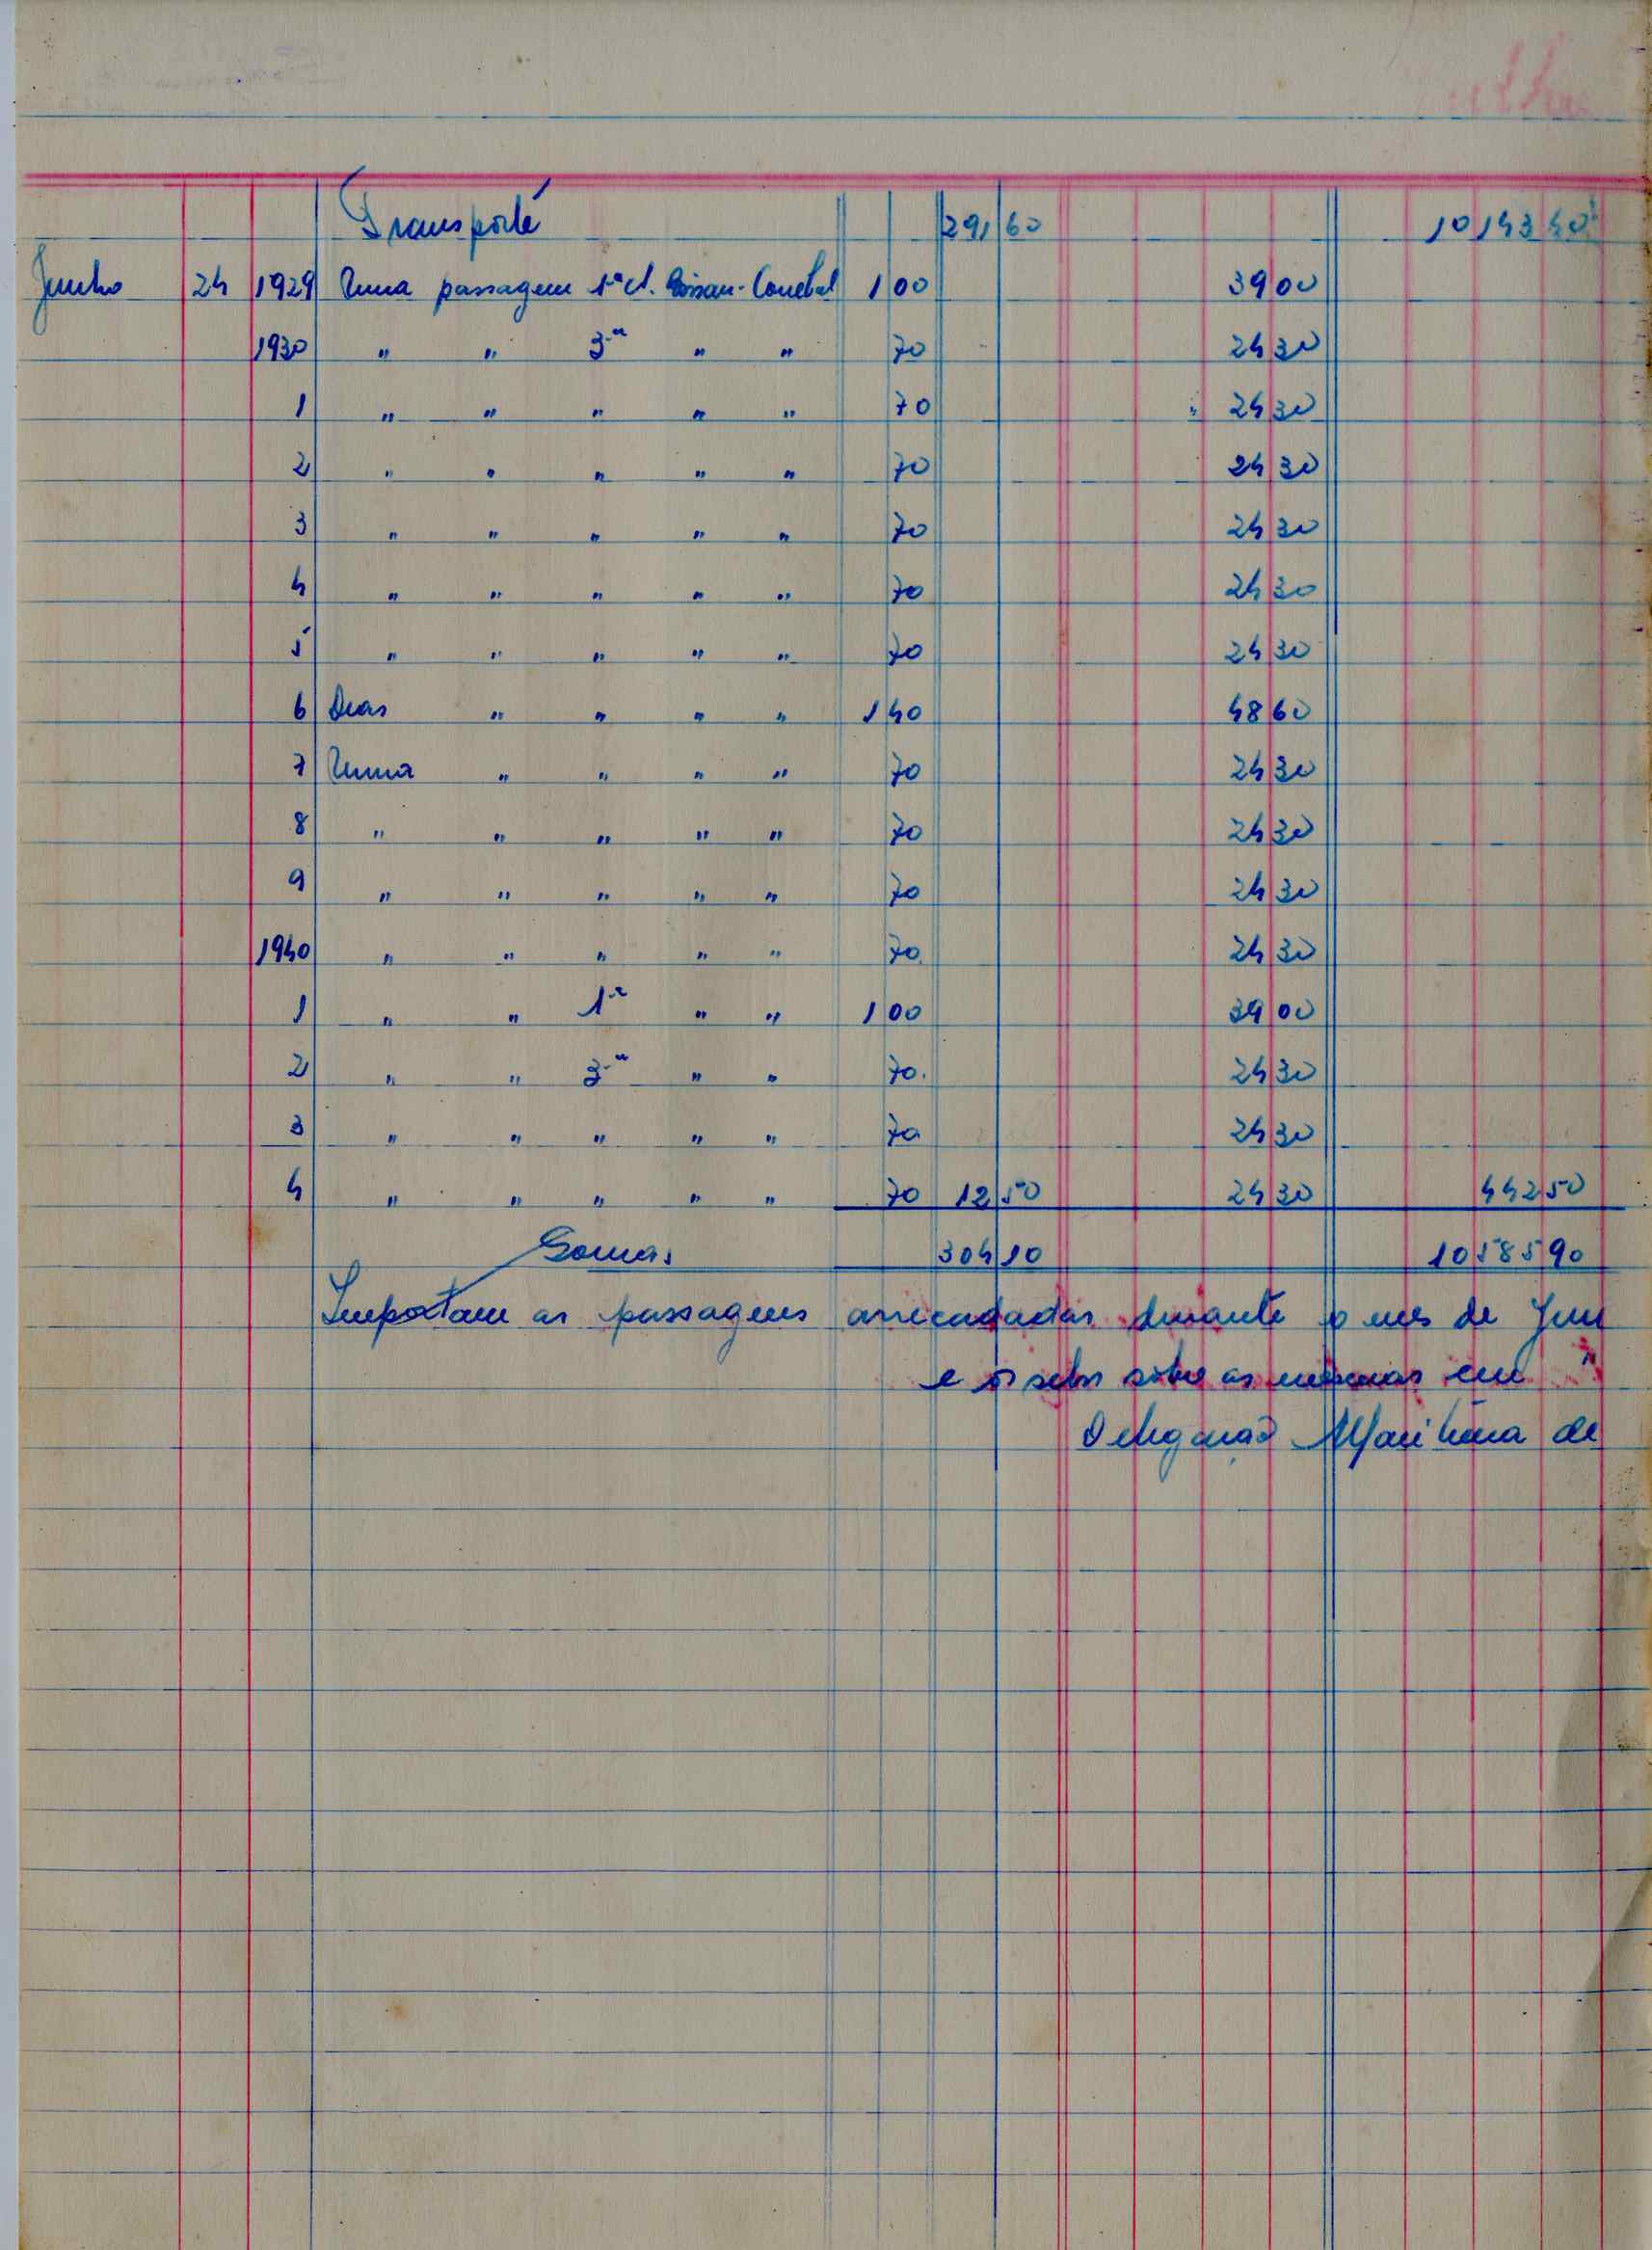 Transporte 291 60 10143 40
Junho 24 1929 Uma passagem 1ª cl. Bissau-Conebal 1 00 39 00
1930 " " 3ª " " 70 24 30
1 " " " " " 70 24 30
2 " " " " " 70 24 30
3 " " " " " 70 24 30
4 " " " " " 70 24 30
5 " " " " " 70 24 30
6 Duas " " " " 1 40 48 60
7 Uma " " " " 70 24 30
8 " " " " " 70 24 30
9 " " " " " 70 24 30
1940 " " " " " 70 24 30
1 " " 1ª " " 1 00 39 00
2 " " 3ª " " 70 24 30
3 " " " " " 70 24 30
4 " " " " " 70 12 50 24 30 442 50
Somas 304 10 10585 90
Importam as passagens arrecadadas durante o mes de Jun
e os selos sobre as mesmas em
Delegação Maritima de